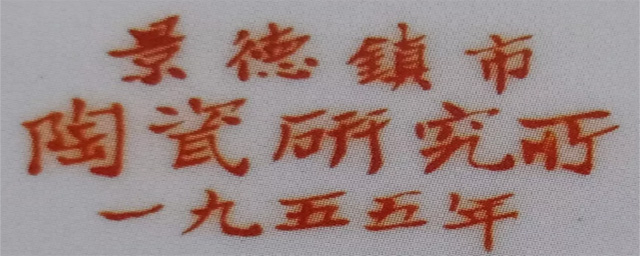 景德鎮市
陶瓷研究所
一九五五年